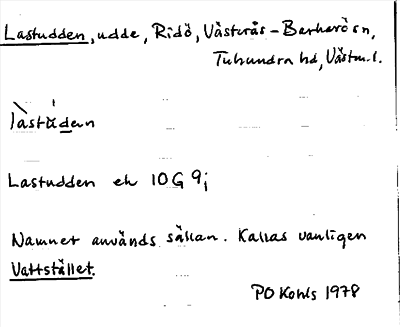 Lastudden, udde, Ridö, Västerås-Barkarö sn,
Tuhundra hd, Västm. l.
Lastudden ek 10G 9j
Namnet används sällan. Kallas vanligen
Vattstället.
PO Kohls 1978